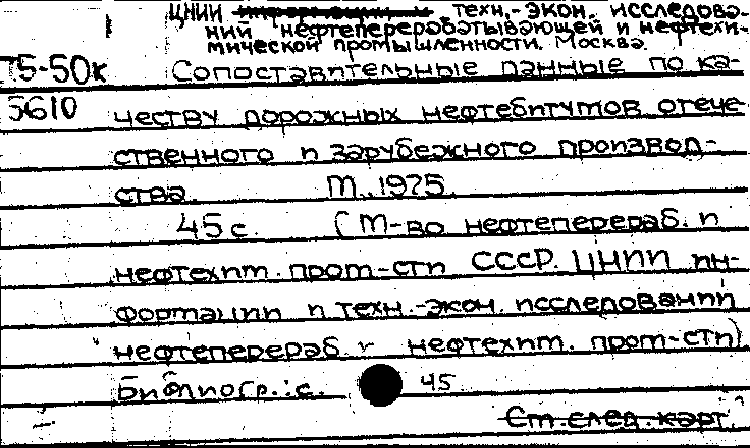 ЦНИИ информации и техн.-экон. исследова-
ний нефтеперерабатывающей и нефтехи-
мической промышленности. Москва.
75-50к Сопоставительные данные по ка-
5610 честву дорожных нефтебитумов отече-
ственного и зарубежного производ-
ства. М., 1975.
45 с. (М-во нефтеперераб. и
нефтехим. пром-сти СССР. ЦНИИ ин-
формации и техн.-экон. исследований
нефтеперераб. и нефтехим. пром-сти)
Библиогр.: с. 45
См. след. карт